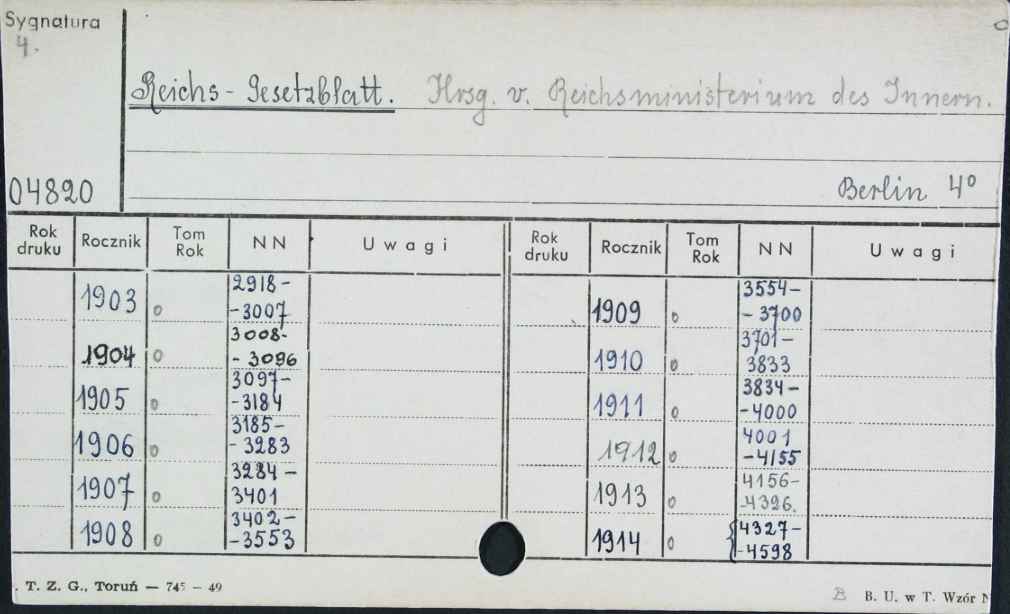 Sygnatura
4.
Reichs-Gesetzblatt. Hrsg. v. Reichsministerium des Innern.
04820
Berlin 4º
Rok druku Rocznik Tom Rok NN Uwagi Rok druku Rocznik Tom Rok NN Uwagi
1903 o 2918- -3007
1909 o 3554- -3700
1904 o 3008- -3096
1910 o 3701- 3833
1905 o 3097- -3184
1911 o 3834- -4000
1906 o 3185- -3283
1912 o 4001 -4155
1907 o 3284- 3401
1913 o 4156- -4326.
1908 o 3402- -3553
1914 o {4327- -4598
. T. Z. G., Toruń — 745 — 49
B B. U. w T. Wzór N